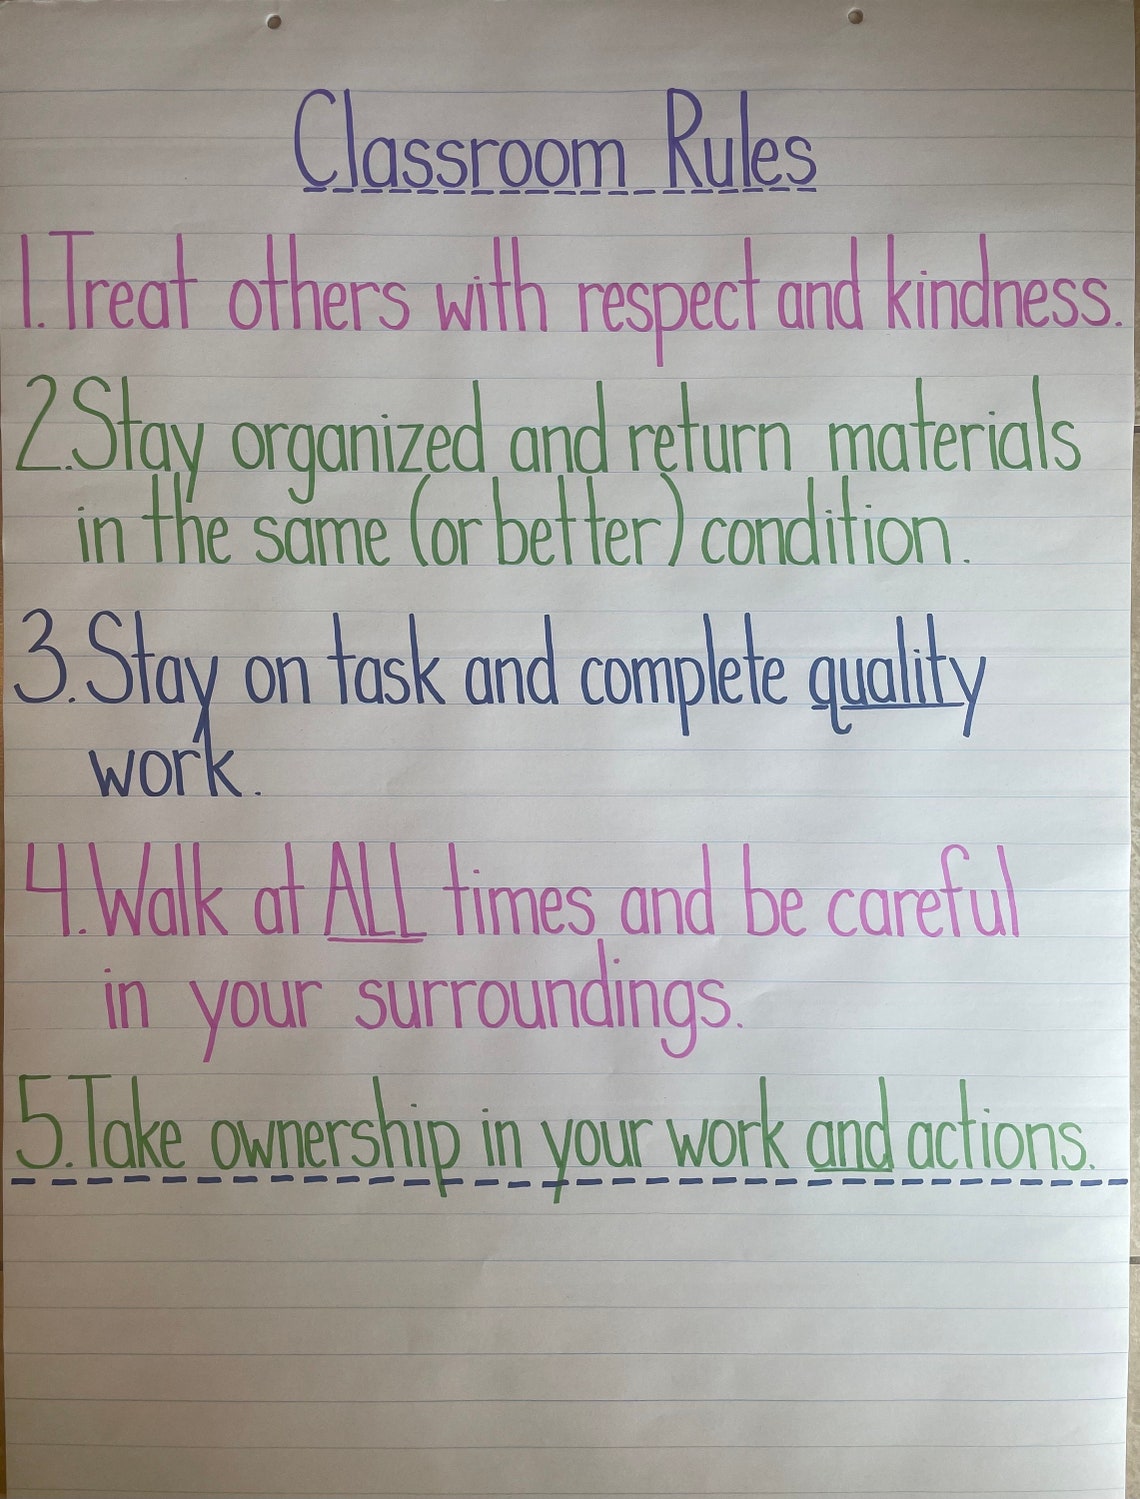 Classroom Rules
1. Treat others with respect and kindness.
2. Stay organized and return materials
in the same (or better) condition.
3. Stay on task and complete quality
work.
4. Walk at ALL times and be careful
in your surroundings.
5. Take ownership in your work and actions.